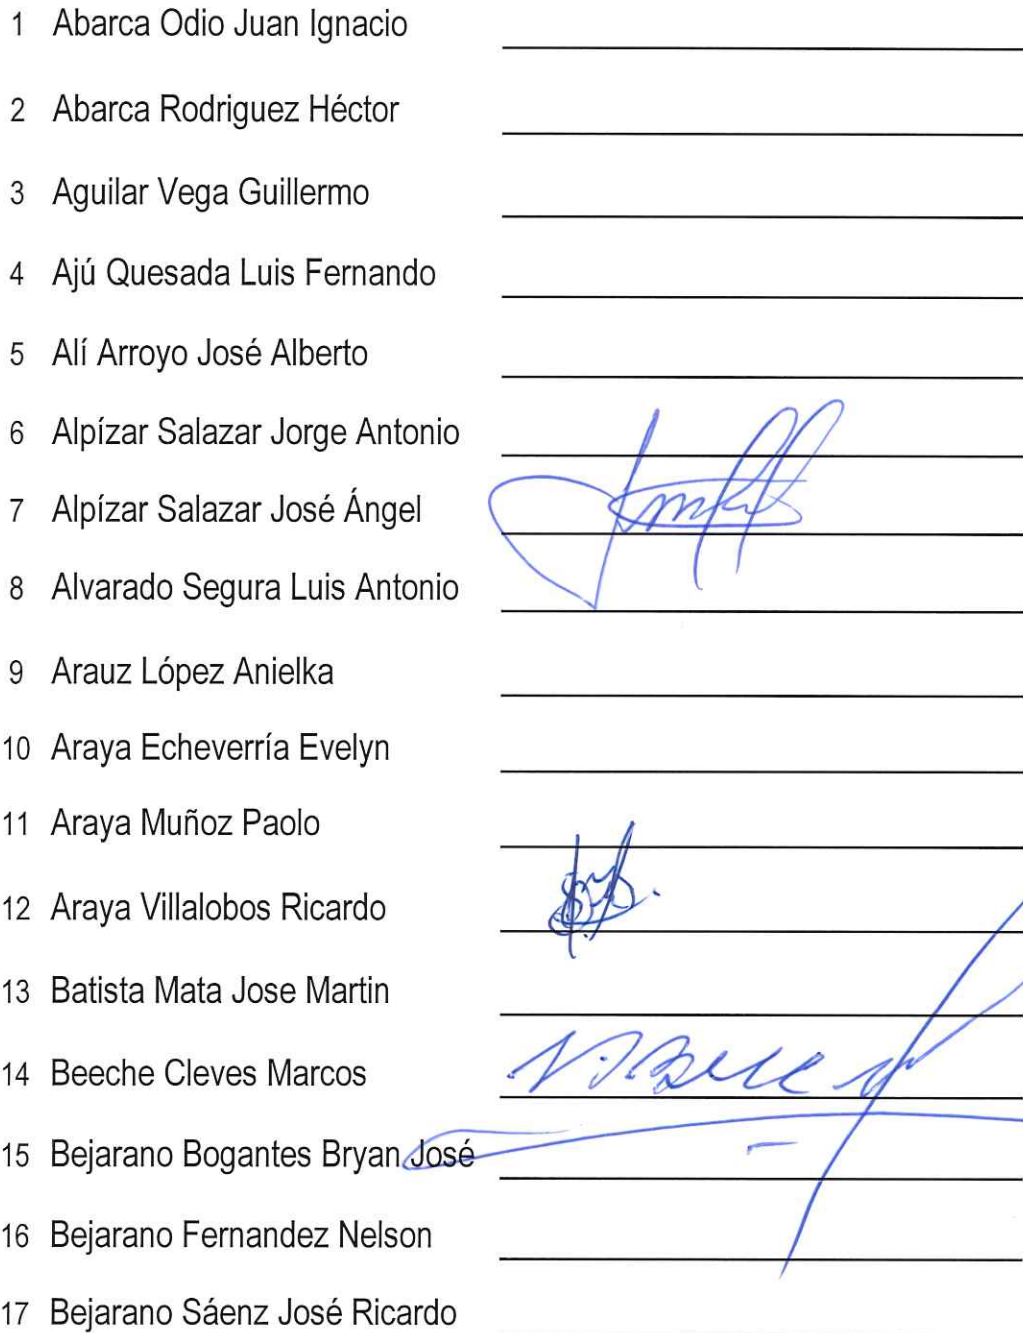 1 Abarca Odio Juan Ignacio
2 Abarca Rodriguez Héctor
3 Aguilar Vega Guillermo
4 Ajú Quesada Luis Fernando
5 Alí Arroyo José Alberto
6 Alpízar Salazar Jorge Antonio
7 Alpízar Salazar José Ángel
8 Alvarado Segura Luis Antonio
9 Arauz López Anielka
10 Araya Echeverría Evelyn
11 Araya Muñoz Paolo
12 Araya Villalobos Ricardo
13 Batista Mata Jose Martin
14 Beeche Cleves Marcos
15 Bejarano Bogantes Bryan José
16 Bejarano Fernandez Nelson
17 Bejarano Sáenz José Ricardo